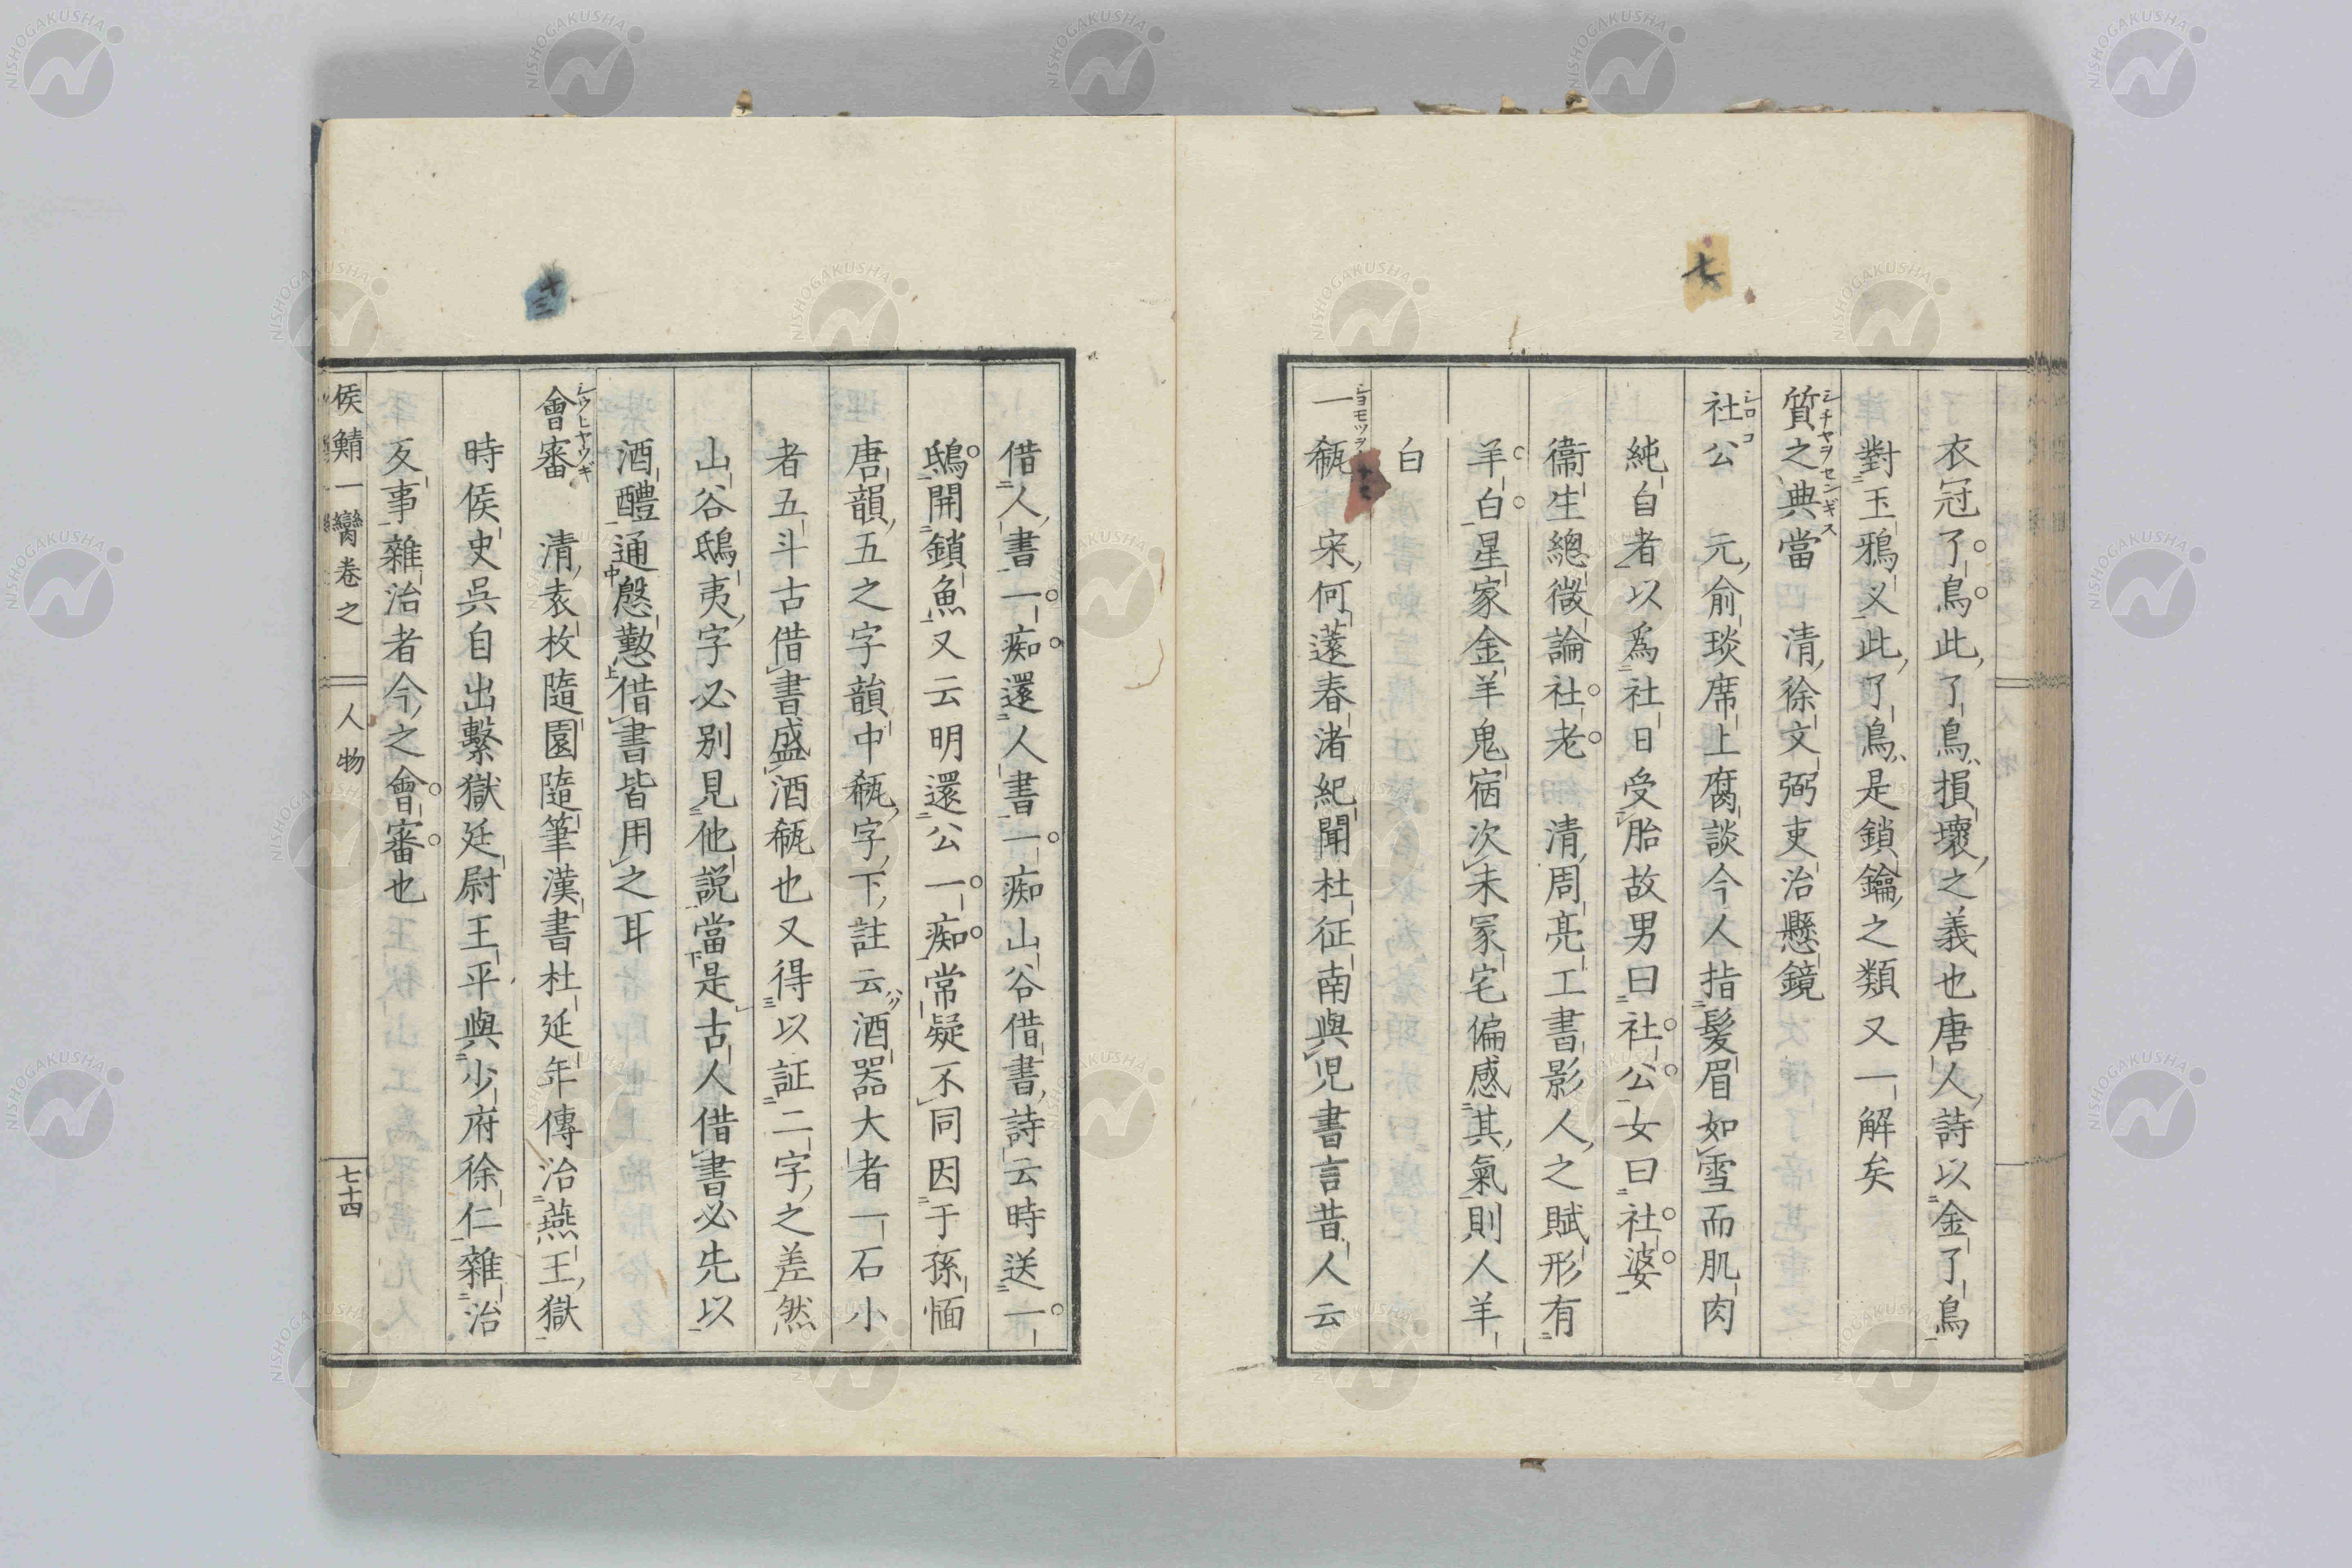 七
衣冠了鳥此了鳥損壞之義也唐人詩以金了鳥
對玉鴉义此了鳥是鎖鑰之類又一解矣
質之典當 清徐文弼吏治懸鏡
シチヤヲセンギス
社公 元俞琰席上腐談今人指髮眉如雪而肌肉
シロコ
純自者以爲社日受胎故男曰社公女曰社婆
衞生總微論社老 清周亮工書影人之賦形有
羊白星家金羊鬼宿次未冢宅偏感其氣則人羊
白
一瓻 宋何薳春渚紀聞杜征南與児書言昔人云
ショモツヲ
十三
借人書一痴還人書一痴山谷借書詩云時送一
鴟開鎖魚又云明還公一痴常疑不同因于孫愐
唐韻五之字韻中瓻字下註云酒器大者一石小
者五斗古借書盛酒瓻也又得以証二字之差然
山谷鴟夷字必別見他説當是古人借書必先以
酒醴通慇懃借書皆用之耳
會審 清袁枚隨園隨筆漢書杜延年傳治燕王獄
シウヒヤウギ
時侯史吳自出繫獄廷尉王平與少府徐仁雜治
反事雜治者今之會審也
侯鯖一臠卷之 人物 七十四